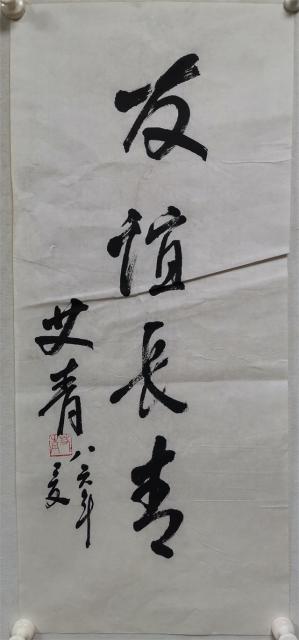 友谊長青
艾青
八六年
夏